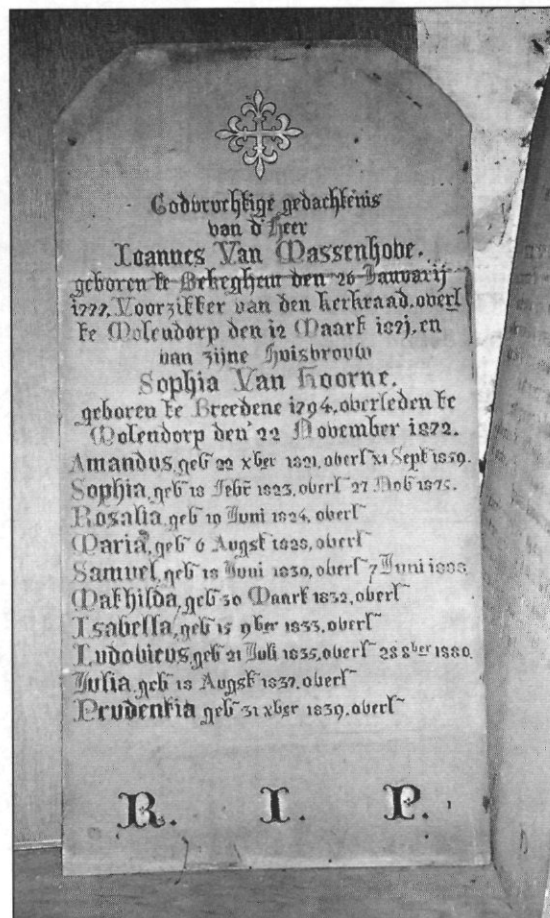 Godvruchtige gedachtenis
van d'heer
Ioannes Van Massenhove.
geboren te Bekeghem den 26 Januarij
1777. Voorzitter van den kerkraad, overl
te Molendorp den 12 Maart 1871. en
van zijne huisvrouw
Sophia Van Hoorne.
geboren te Breedene 1794. overleden te
Molendorp den 22 November 1872.
Amandus, geb 22 xber 1821, overl XI Sept 1859.
Sophia, geb 18 Febr 1823, overl 27 Nob 1875.
Rosalia, geb 19 Juni 1824, overl
Maria, geb 6 Augst 1828, overl
Samuel, geb 18 Juni 1830, overl 7 Juni
Mathilda, geb 30 Maart 1832, overl
Isabella, geb 15 9ber 1833, overl
Ludovicus, geb 21 Juli 1835, overl 28 8ber 1880.
Julia, geb 18 Augst 1837, overl
Prudentia geb 31 xber 1839, overl
R. I. P.